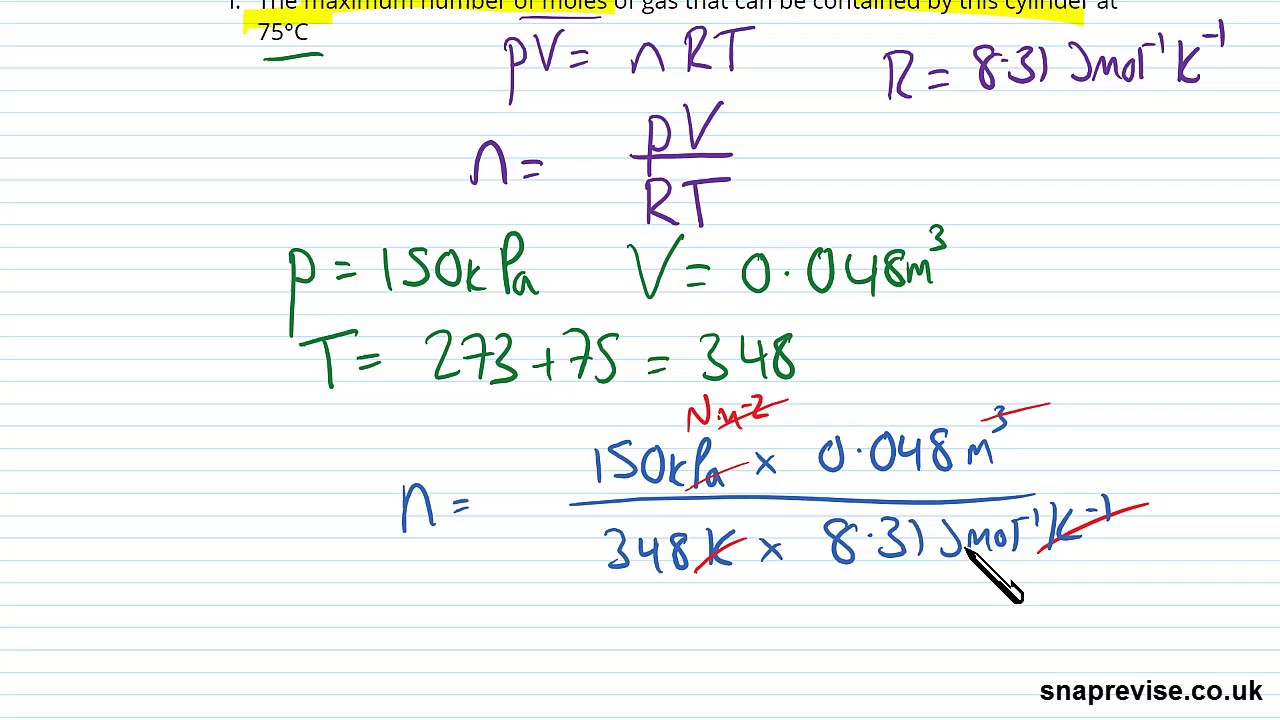 i. The maximum number of moles of gas that can be contained by this cylinder at
75°C
pV = nRT
R = 8.31 Jmol⁻¹K⁻¹
n = pV
RT
p = 150kPa V = 0.048m³
T = 273+75 = 348
N.m⁻²
150kPa x 0.048m³
n =
348K x 8.31 Jmol⁻¹K⁻¹
snaprevise.co.uk